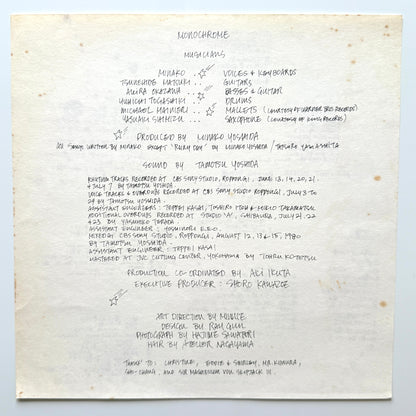 MONOCHROME
MUSICIANS
MINAKO .. VOICES & KEYBOARDS
TSUNEHIDE MATSUKI GUITARS
AKIRA OKAZAWA .. BASSES & GUITAR
YUUICHI TOGASHIKI DRUMS
MICHAEL HANIORI .. MALLETS (COURTESY OF WARNER BROS RECORDS)
YASUAKI SHIMIZU .. SAXOPHONE (COURTESY OF KING RECORDS)
PRODUCED BY MINAKO YOSHIDA
ALL SONGS WRITTEN BY MINAKO EXCEPT "RAINY DAY" BY MINAKO YOSHIDA / TATSURO YAMASHITA
SOUND BY TAMOTSU YOSHIDA
RHYTHM TRACKS RECORDED AT CBS SONY STUDIO, ROPPONGI, JUNE 13, 14, 20, 21
& JULY 7 BY TAMOTSU YOSHIDA
VOICE TRACKS & OVERDUBS RECORDED AT CBS SONY STUDIO ROPPONGI, JULY 3 TO
29 BY TAMOTSU YOSHIDA
ASSISTANT ENGINEERS: TEPPEI KASAI, TOSHIRO ITOH & MIKIO TAKAMATSU
ADDITIONAL OVERDUBS RECORDED AT STUDIO 'A', SHIBAURA, JULY 21, 22
& 23 BY YASUHIKO TERADA
ASSISTANT ENGINEER: YOSHINORI
MIXED AT CBS SONY STUDIO, ROPPONGI, AUGUST 12, 13 & 15, 1980
BY TAMOTSU YOSHIDA
ASSISTANT ENGINEER: TEPPEI KASAI
MASTERED AT JVC CUTTING CENTER, YOKOHAMA BY TOHRU KOTETSU
PRODUCTION CO-ORDINATED BY AKI IKUTA
EXECUTIVE PRODUCER: SHORO KAWAZOE
ART DIRECTION BY MINNIE
DESIGN BY RAY GUN
PHOTOGRAPH BY HAJIME SAWATARI
HAIR BY ATELIER NAGAYAMA
THANKS TO: CHRISTINE, EDDIE & SHIRLEY, MR. KIMURA,
CHO-CHANG, AND SIR MAGNESIUM VON SKYJACK III.